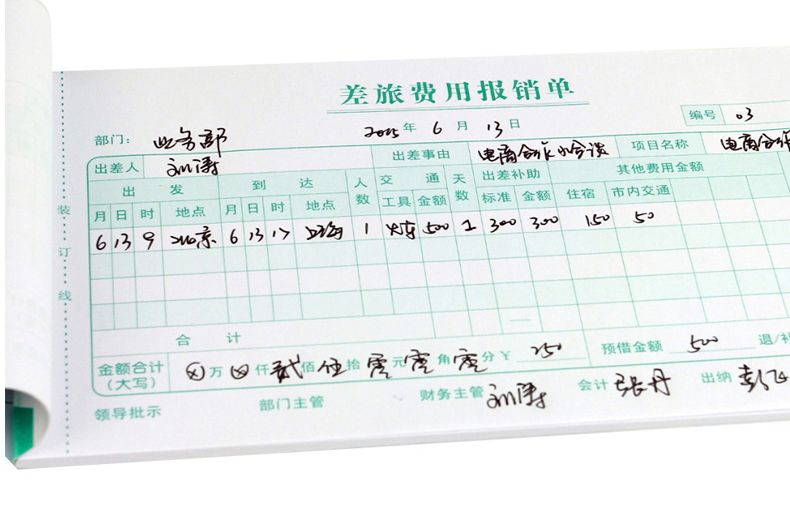 差旅费用报销单
部门: 业务部 2025 年 6 月 13 日 编号 03
出差人 刘涛 出差事由 电商合作小会谈 项目名称 电商合作
出 发 到 达 人数 交 通 天数 出差补助 其他费用金额
月 日 时 地点 月 日 时 地点 工具 金额 标准 金额 住宿 市内交通
6 13 9 北京 6 13 17 上海 1 火车 500 1 300 300 150 50
合 计
金额合计(大写) ⊗ 万 ⊗ 仟 贰 佰 伍 拾 零 元 零 角 零 分 ¥ 250 预借金额 500 退/补
领导批示 部门主管 财务主管 刘涛 会计 张丹 出纳
装订线